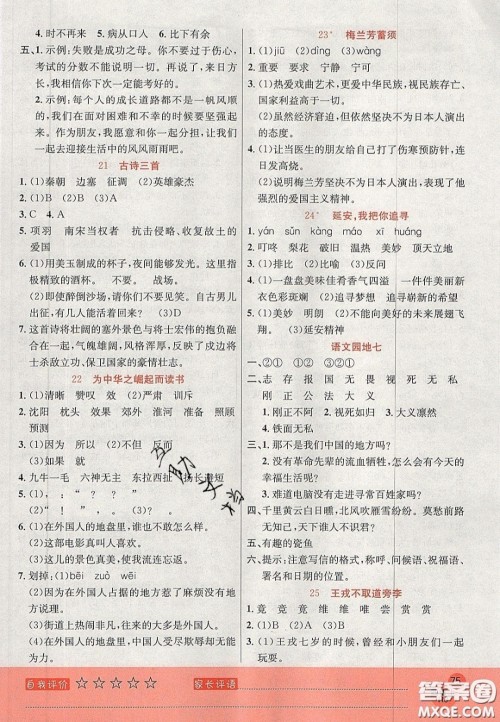 4. 时不再来　5. 病从口入　6. 比下有余
五、1. 示例：失败是成功之母。你不要过于伤心，
考试的分数不能说明一切。再说了，来日方
长，我相信你下一次一定能考好的。
2. 示例：每个人的成长道路都不是一帆风顺
的，我们在面对困难和不幸的时候要勇敢坚
强。作为朋友，我愿意和你一起分担，让我们一
起去迎接生活中的风风雨雨吧。
21　古诗三首
1. (1)秦朝　边塞　征调　(2)英雄豪杰
2. (1)B　(2)B
3. C　4. A
5. 项羽　南宋当权者　抗击侵略、收复故土的
爱国
6. (1)用美玉制成的杯子，夜间能够发光。　精
美的酒杯。　不要。　战场。
(2)即使醉倒沙场，请诸君不要见笑。自古男儿出
征，有几人能活着归来？
7. 这首诗将壮阔的塞外景色与将士宏伟的抱负融
合在一起，气魄雄阔，风格豪迈，反映了戍边将
士杀敌立功、保卫国家的豪情壮志。
22　为中华之崛起而读书
1. (1)清晰　赞叹　(2)严肃　训斥
2. 沈阳　枕头　效果　郊外　淮河　准备　照顾
预测
3. (1)因为　所以　(2)不但　反而
(3)只有　才能
4. 九牛一毛　六神无主　东拉西扯　扬长避短
5. (1)，：“　？　？　”　(2)，：“　？　”
6. (1)在外国人的地盘里，谁也不敢怎么样。
(2)这部电影真让人喜欢！
(3)这儿的景色真美，使我们流连忘返。
7. 划掉：(1)bēi　zuò　wéi
(2)因为在外国人占据的地方惹了麻烦没有地
方可以说理。
(3)街道上热闹非凡，往来的大多是外国人。
(4)在外国人的地盘里，中国人受欺侮却无处
说理，从中感受到中华不振。
23*　梅兰芳蓄须
1. (1)jiū　(2)dìng　(3)wàng
2. 重要　要求　宁静　宁可
3. (1)热爱戏曲艺术，更热爱中华民族，视民族存亡、
国家利益高于一切。
(2)虽然经济窘迫，但依然坚决不为日本人演出
的态度。
(3)让当医生的朋友给自己打了伤寒预防针，连
日发高烧。
(4)说明梅兰芳坚决不为日本人演出，表现了他
强烈的爱国主义精神。
24*　延安，我把你追寻
1. yán　sǔn　kàng　dòu　xī　huáng
2. 叮咚　梨花　破旧　温热　美妙　顶天立地
3. (1)排比　(2)比喻　(3)反问
4. (1)一盘盘美味佳肴香气四溢　一件件美丽新
衣色彩斑斓　(2)追寻梦想　追寻崭新的希望
5. (1)美妙　明朗　(2)不能拥有美好的未来展翅飞
翔。　(3)延安精神
语文园地七
一、②①　②①　②①
二、志　存　报　国　无　畏　视　死　无　私
刚　正　公　法　大　义
1. 刚正不阿　2. 视死如归　3. 大义凛然
4. 铁面无私
三、1. 那不是我们中国的地方吗？
2. 没有革命先烈的流血牺牲，怎么会有今天的
幸福生活呢？
3. 难道电脑没有走进我们的生活吗？
四、千里黄云白日曛，北风吹雁雪纷纷。莫愁前路
无知己，天下谁人不识君？
五、有趣的瓷鱼
六、提示：注意写信的格式，称呼、问候语、祝福语、
署名和日期的书写位置。
25　王戎不取道旁李
1. 竟　竟　竟　维　维　唯　尝　赏　赏
2. (1)B　(2)B
3. (1)王戎七岁的时候，曾经和小朋友们一起
玩耍。
自我评价　☆☆☆☆☆　家长评语
75
答案圈
MXQE.COM